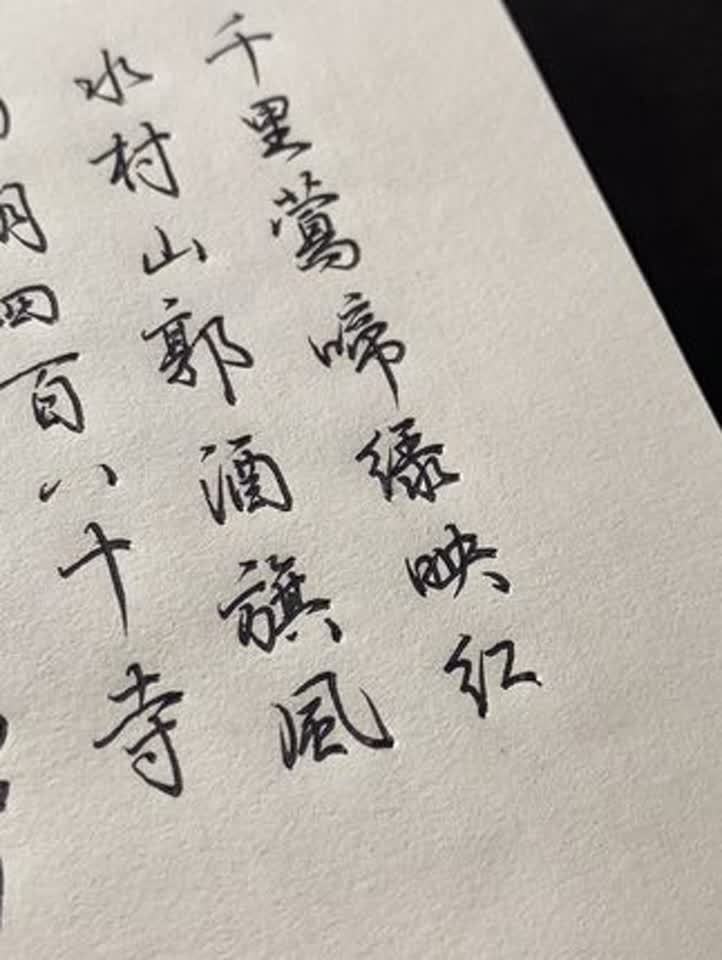 千里鶯啼绿映红
水村山郭酒旗風
四百八十寺